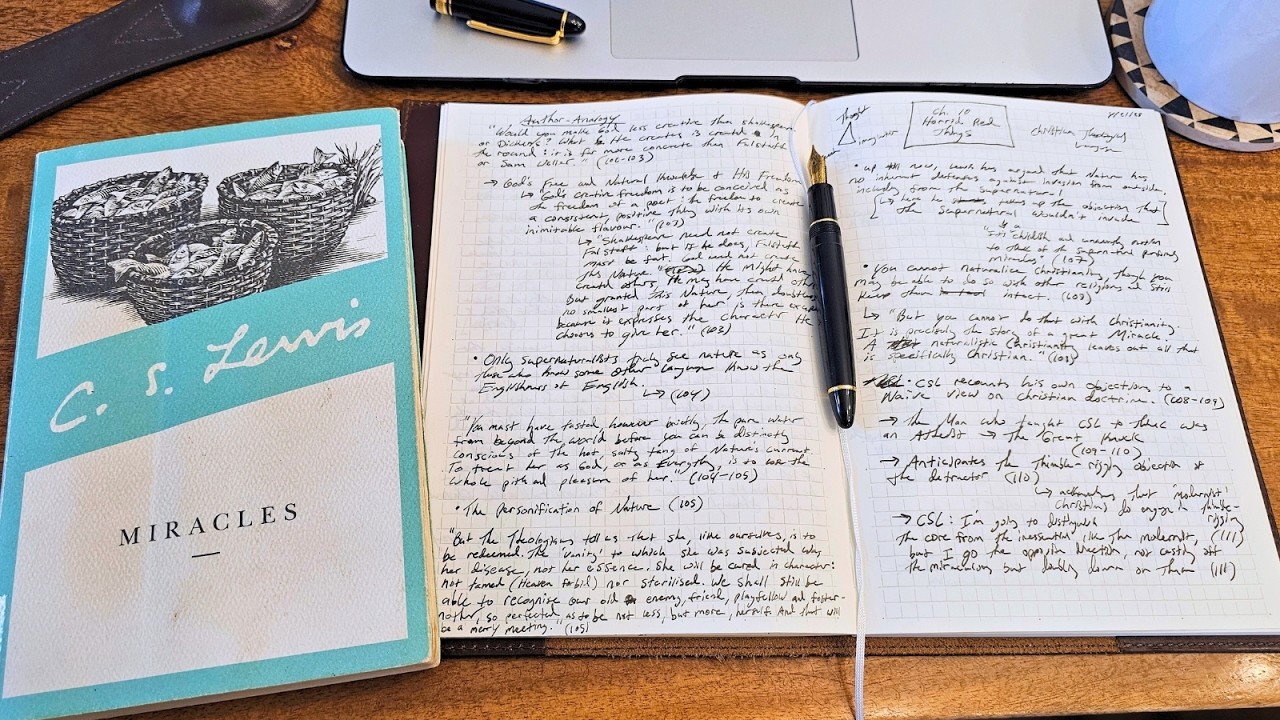 C. S. Lewis
MIRACLES
Author-Analogy
"Would you make God less creative than Shakespeare
or Dickens? What He creates is created in
the round: it is far more concrete than Falstaff
or Sam Weller." (102-103)
→ God's Free and Natural
↳ God's creative freedom is to be conceived as
the freedom of a poet: the freedom to create
a consistent, positive thing with his own
inimitable flavour. (103)
↳ "Shakespeare need not create
Falstaff, but if he does, Falstaff
must be fat. God need not create
this Nature. He might have
created others, He may have created others.
But granted this Nature, then doubtless
no smallest part of her is there except
because it expresses the character He
chooses to give her." (103)
• Only supernaturalists truly see nature as only
those who know some other language know the
Englishness of English.
↳ (104)
"You must have tasted, however briefly, the pure water
from beyond the world before you can be distinctly
conscious of the hot, salty tang of Nature's current.
To treat her as God, or as Everything, is to lose the
whole pith and pleasure of her." (104-105)
• The Personification of Nature (105)
"But the Theologians tell us that she, like ourselves, is to
be redeemed. The 'vanity' to which she was subjected was
her disease, not her essence. She will be cured in character:
not tamed (Heaven forbid) nor sterilised. We shall still be
able to recognise our old enemy, friend, playfellow and foster-
mother, so perfected as to be not less, but more, herself. And that will
be a merry meeting." (105)
Thought
Imagination
Ch. 10
Horrid Red
Things
Christian Theological
• up till now, Lewis has argued that Nature has
no inherent defenses against invasion from outside,
including from the supernatural
[↳ here he takes up the objection that
the Supernatural wouldn't invade.]
to that of the Supernatural
miracles" (107)
• You cannot naturalise Christianity, though you
may be able to do so with other religions and still
keep them intact. (108)
↳ "But you cannot do that with Christianity.
It is precisely the story of a great Miracle.
A naturalistic Christianity leaves out all that
is specifically Christian." (108)
CSL recounts his own objection to a
Naive view on Christian doctrine. (108-109)
→ The Man who taught CSL to think was
an Atheist → The Great Knock
(109-110)
→ Anticipates the Thimble-rigging objection of
the detractor (110)
↳ acknowledges that 'modernist'
Christians do engage in thimble-
rigging
→ CSL: I'm going to distinguish
the core from the inessential like the modernist, (111)
but I go the opposite direction, not casting off
the miraculous but doubly down on them (111)